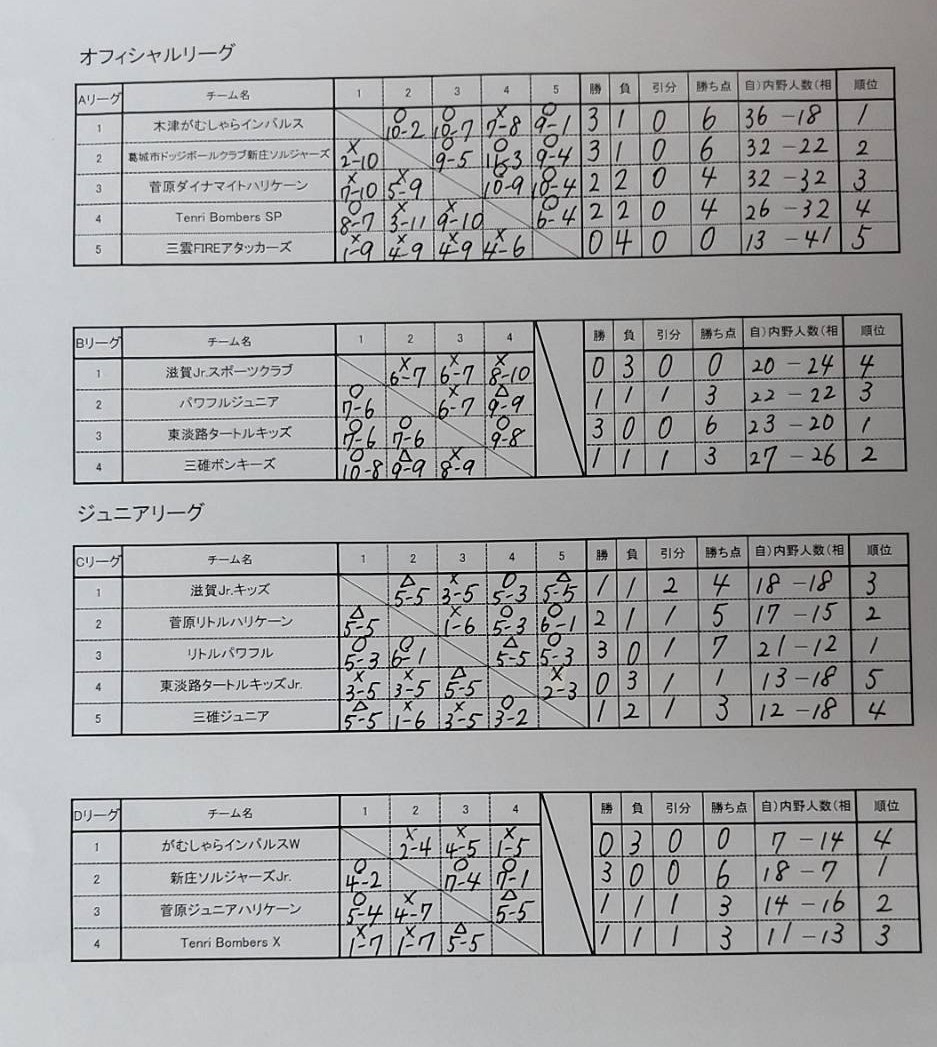 オフィシャルリーグ
Aリーグ チーム名 1 2 3 4 5 勝 負 引分 勝ち点 自)内野人数(相 順位
1 木津がむしゃらインパルス ○ 10-2 ○ 10-7 × 7-8 ○ 9-1 3 1 0 6 36-18 1
2 葛城市ドッジボールクラブ新庄ソルジャーズ × 2-10 ○ 9-5 ○ 11-3 ○ 9-4 3 1 0 6 32-22 2
3 菅原ダイナマイトハリケーン × 7-10 × 5-9 ○ 10-9 ○ 10-4 2 2 0 4 32-32 3
4 Tenri Bombers SP ○ 8-7 × 3-11 × 9-10 ○ 6-4 2 2 0 4 26-32 4
5 三雲FIREアタッカーズ × 1-9 × 4-9 × 4-9 × 4-6 0 4 0 0 13-41 5
Bリーグ チーム名 1 2 3 4 勝 負 引分 勝ち点 自)内野人数(相 順位
1 滋賀Jr.スポーツクラブ × 6-7 × 6-7 × 8-10 0 3 0 0 20-24 4
2 パワフルジュニア ○ 7-6 × 6-7 △ 9-9 1 1 1 3 22-22 3
3 東淡路タートルキッズ ○ 7-6 ○ 7-6 ○ 9-8 3 0 0 6 23-20 1
4 三碓ボンキーズ ○ 10-8 △ 9-9 × 8-9 1 1 1 3 27-26 2
ジュニアリーグ
Cリーグ チーム名 1 2 3 4 5 勝 負 引分 勝ち点 自)内野人数(相 順位
1 滋賀Jr.キッズ △ 5-5 × 3-5 ○ 5-3 △ 5-5 1 1 2 4 18-18 3
2 菅原リトルハリケーン △ 5-5 × 1-6 ○ 5-3 ○ 6-1 2 1 1 5 17-15 2
3 リトルパワフル ○ 5-3 ○ 6-1 △ 5-5 ○ 5-3 3 0 1 7 21-12 1
4 東淡路タートルキッズJr. × 3-5 × 3-5 △ 5-5 × 2-3 0 3 1 1 13-18 5
5 三碓ジュニア △ 5-5 × 1-6 × 3-5 ○ 3-2 1 2 1 3 12-18 4
Dリーグ チーム名 1 2 3 4 勝 負 引分 勝ち点 自)内野人数(相 順位
1 がむしゃらインパルスW × 2-4 × 4-5 × 1-5 0 3 0 0 7-14 4
2 新庄ソルジャーズJr. ○ 4-2 ○ 7-4 ○ 7-1 3 0 0 6 18-7 1
3 菅原ジュニアハリケーン ○ 5-4 × 4-7 △ 5-5 1 1 1 3 14-16 2
4 Tenri Bombers X × 1-7 × 1-7 △ 5-5 1 1 1 3 11-13 3